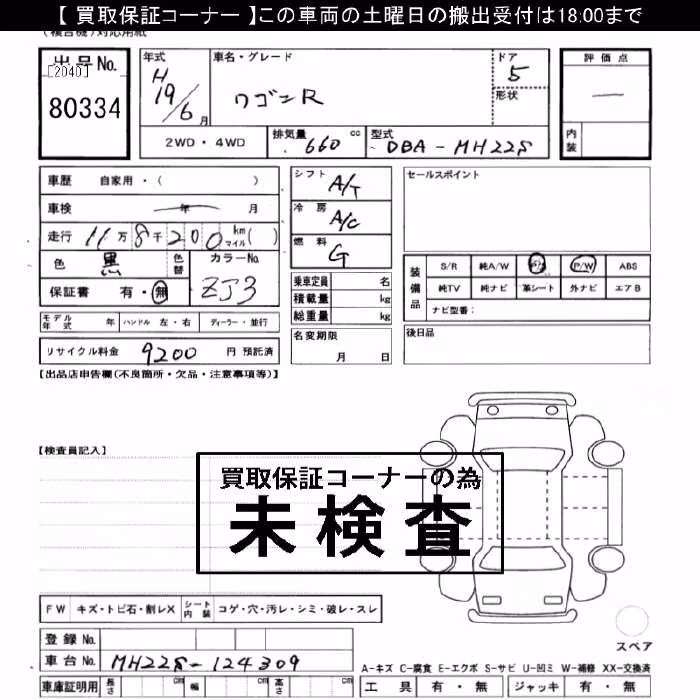 【 買取保証コーナー 】この車両の土曜日の搬出受付は18:00まで
(複合機)対応用紙
出品No. [2040] 80334
年式 H 19/6月
車名・グレード ワゴンR
ドア 5
形状
評価点 ―
内装
2WD・4WD 排気量 660 cc 型式 DBA-MH22S
車歴 自家用・( )
車検 年 月
走行 11万8千200 km マイル( )
色 黒 色替 カラーNo. ZJ3
保証書 有・無
モデル年式 年 ハンドル 左・右 ディーラー・並行
リサイクル料金 9200 円 預託済
シフト A/T
冷房 A/C
燃料 G
乗車定員 名
積載量 kg
総重量 kg
名変期限 月 日
セールスポイント
装備品 S/R 純A/W P/W ABS
純TV 純ナビ 革シート 外ナビ エアB
ナビ型番:
後日品
【出品店申告欄(不良箇所・欠品・注意事項等)】
【検査員記入】
買取保証コーナーの為
未検査
FW キズ・トビ石・割レX シート内装 コゲ・穴・汚レ・シミ・破レ・スレ
登録No.
車台No. MH22S-124309
車庫証明用 長さ cm 幅 cm 高さ cm
スペア
A-キズ C-腐食 E-エクボ S-サビ U-凹ミ W-補修 XX-交換済
工具 有・無 ジャッキ 有・無